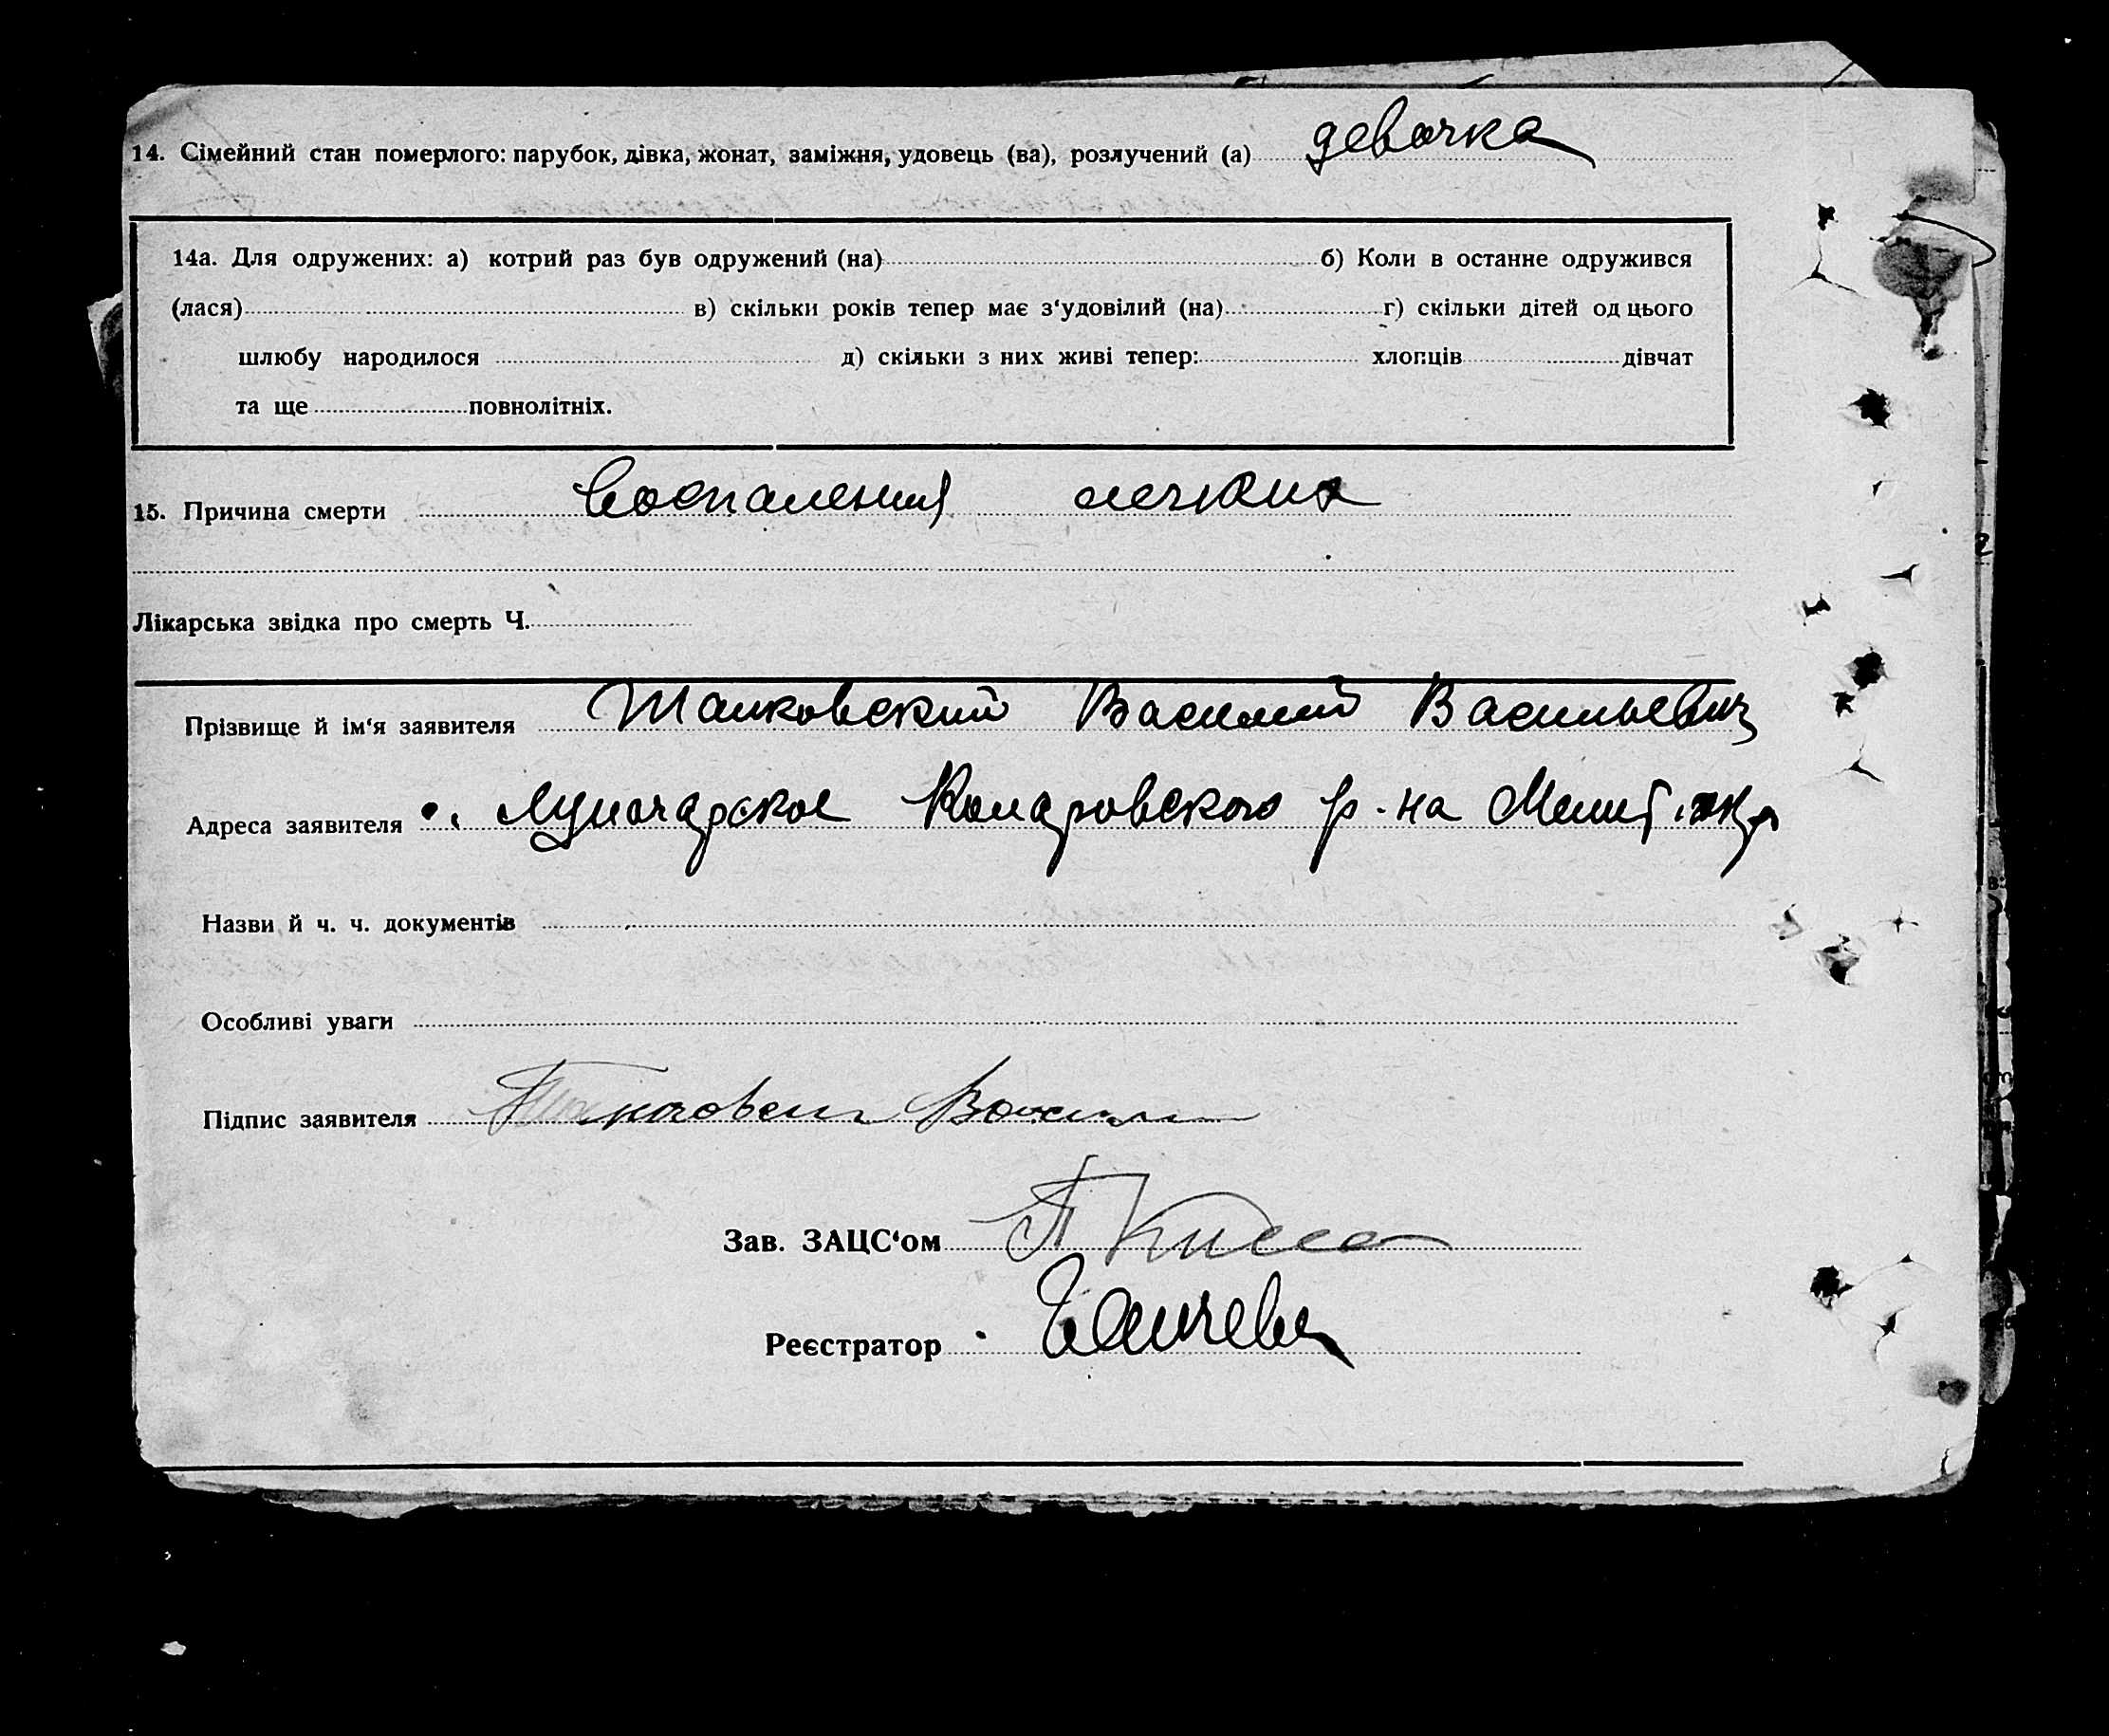 14. Сімейний стан померлого: парубок, дівка, жонат, заміжня, удовець (ва), розлучений (а) девочка
14а. Для одружених: а) котрий раз був одружений (на) б) Коли в останне одружився
(лася) в) скільки років тепер має з‘удовілий (на) г) скільки дітей од цього
шлюбу народилося д) скільки з них живі тепер: хлопців дівчат
та ще повнолітніх.
15. Причина смерти Воспаления легких
Лікарська звідка про смерть Ч.
Прізвище й ім‘я заявителя Василий Васильевич
Адреса заявителя с. Луначарское р-на
Назви й ч. ч. документів
Особливі уваги
Підпис заявителя
Зав. ЗАЦС‘ом
Реєстратор